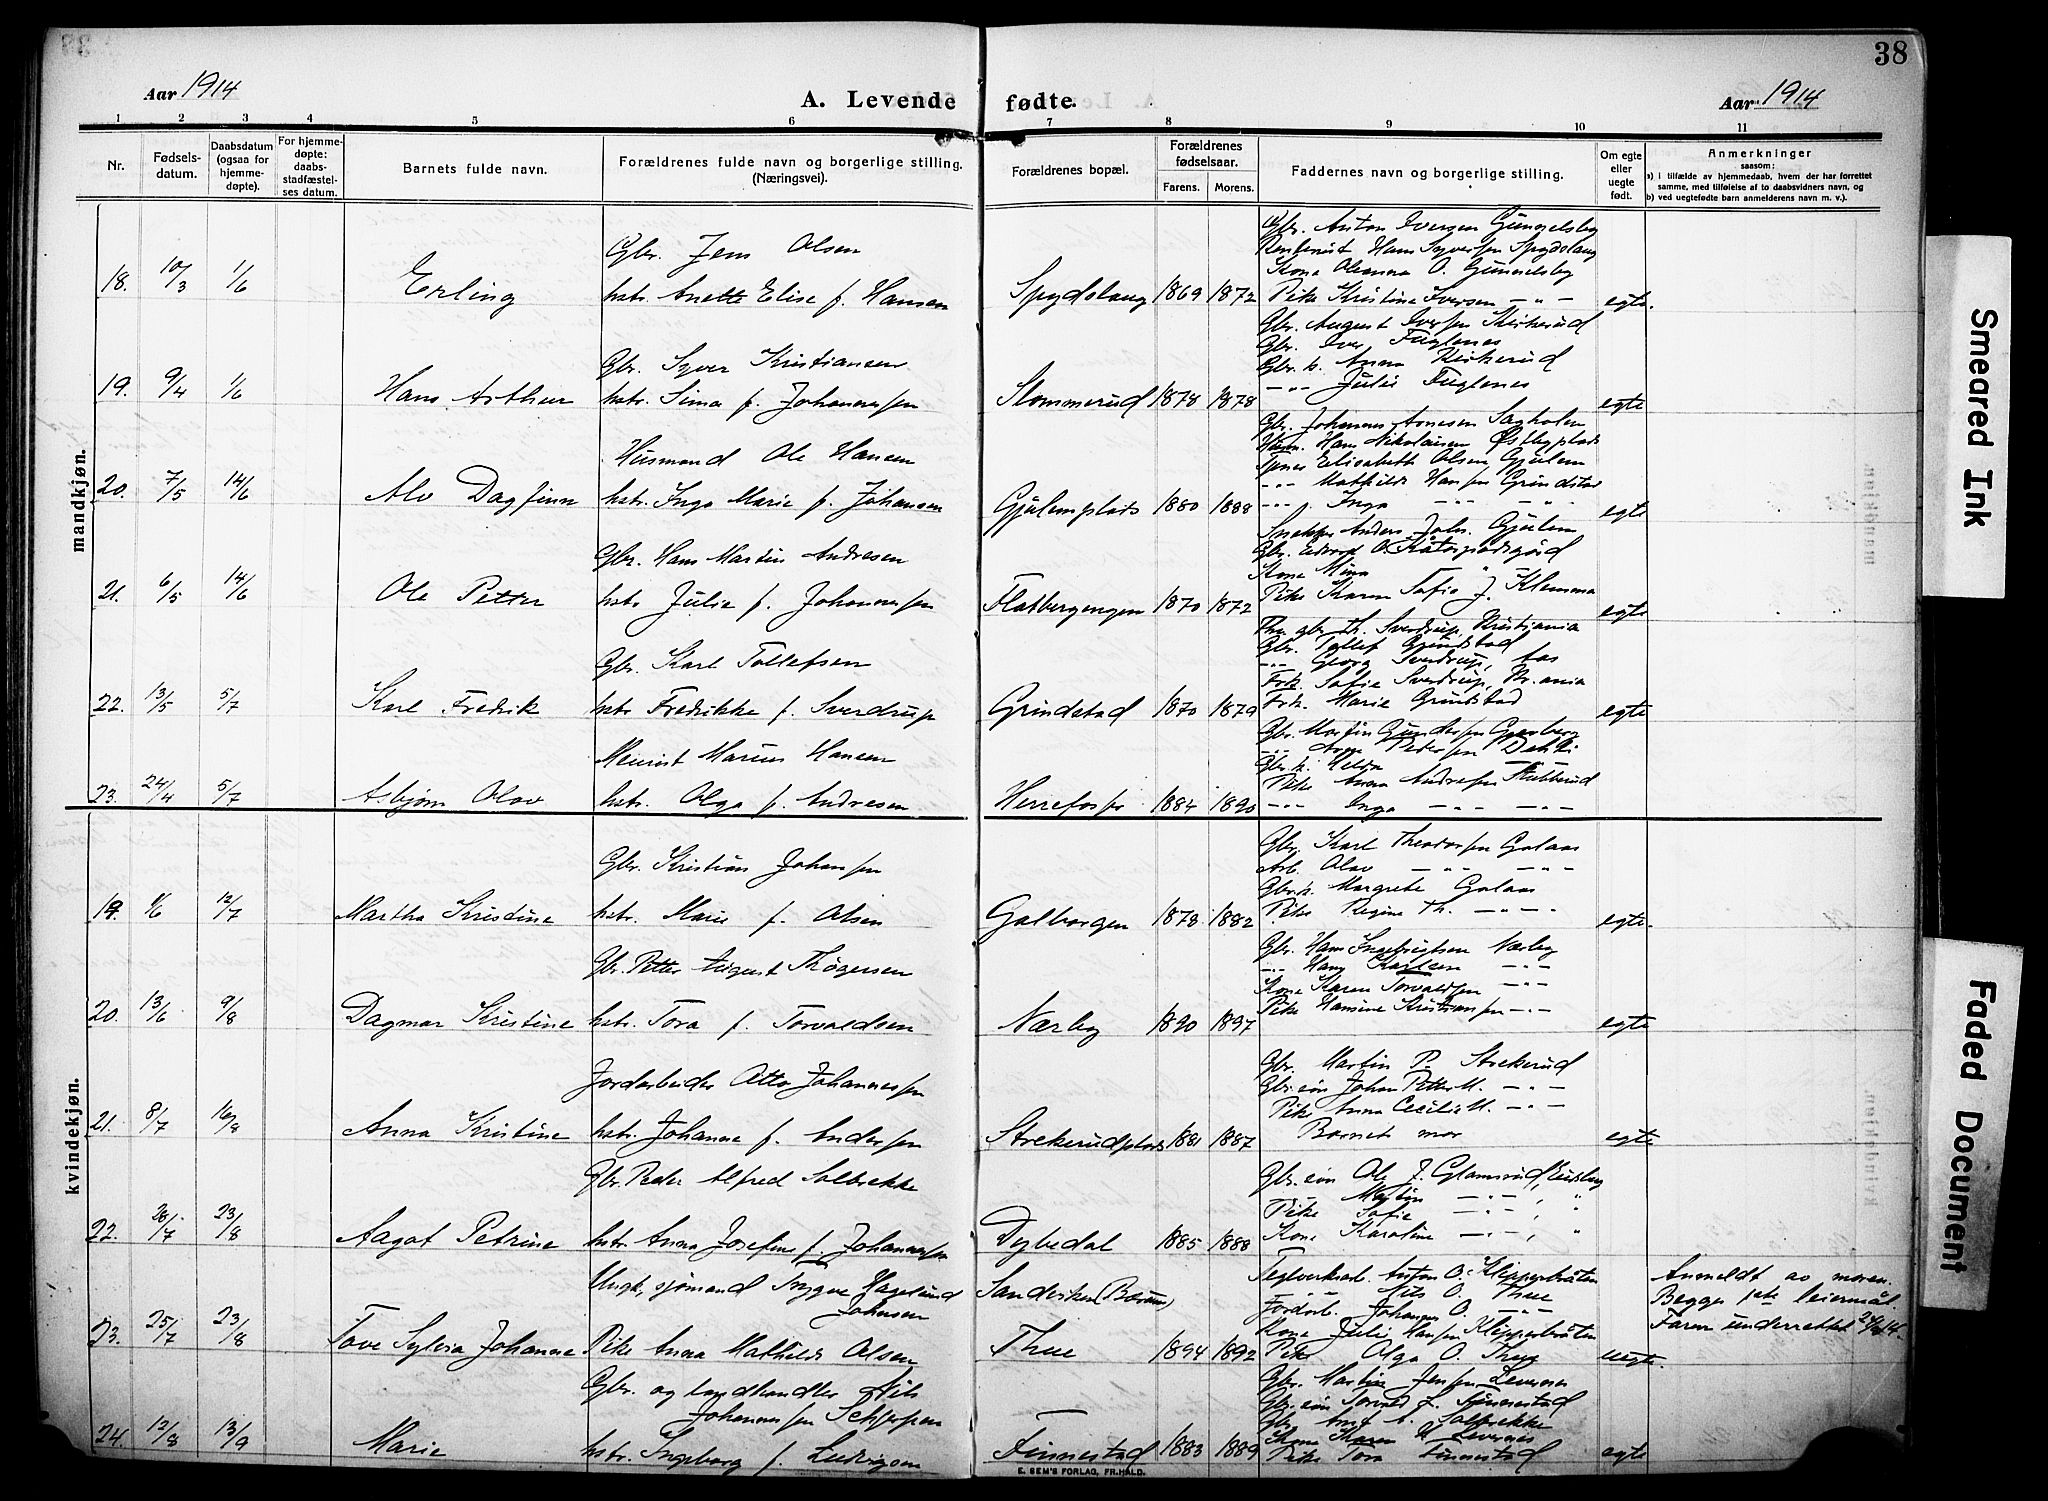 38
Aar 1914
A. Levende fødte.
Aar 1914
1 2 3 4 5 6 7 8 9 10 11
Nr.
Fødsels-
datum.
Daabsdatum
(ogsaa for
hjemme-
døpte).
For hjemme-
døpte:
daabs-
stadfæstel-
ses datum.
Barnets fulde navn.
Forældrenes fulde navn og borgerlige stilling.
(Næringsvei).
Forældrenes bopæl.
Forældrenes
fødselsaar.
Farens. Morens.
Faddernes navn og borgerlige stilling.
Om egte
eller
uegte
født.
Anmerkninger
saasom:
a) i tilfælde av hjemmedaab, hvem der har forrettet
samme, med tilføielse af to daabsvidners navn, og
b) ved uegtefødte barn anmelderens navn m. v.).
mandkjøn.
Gbr. Anton Iversen Gunnelsby
Gbr. Jens Olsen
Hans Syversen Spydslaug
Kone Oleanna O. Gunnelsby
18. 10/3 1/6 Erling hstr. Anette Elise f. Hansen Spydslaug 1869 1872 Pike Kristine Iversen — " — egte.
Gbr. August Iversen Kirkerud
Gbr. Iver Fuglenes
Gbr. Syver Kristiansen
Gbr. k. Anna Kirkerud
-"- Julie Fuglenes
19. 9/4 1/6 Hans Arthur hstr. Sina f. Johannessen Slommerud 1878 1878 egte
Gbr. Johannes Arnesen Sagholen
Husmand Ole Hansen
Hans Nikolaisen Østbyplads
Elisabeth Olsen Gjulem
-"- Mathilde Hansen Grindstad
20. 7/5 14/6 Alv Dagfinn hstr. Inga Marie f. Johansen Gjulemplads 1880 1888 -"- Inga -"- -"- egte
Snekker Anders Johs. Gjulem
Gbr. Hans Martin Andresen
Gbr. Edvard O.
Kone Mina "
21. 6/5 14/6 Ole Petter hstr. Julie f. Johannessen Flatbergengen 1870 1872 Pike Karen Sofie J. Klemma egte
Th. Sverdrup, Kristiania
Gbr. Tollef Grindstad
Gbr. Karl Tollefsen
-"- Georg Sverdrup, Aas
Frk. Sofie Sverdrup, Kr.ania
22. 13/5 5/7 Karl Fredrik hstr. Fredrikke f. Sverdrup Grindstad 1870 1879 Frk. Marie Grindstad egte
Gbr. Martin Gundersen
Murer Marius Hansen
-"- Arne Pedersen Dehli
Gbr. k. Helda — " —
Pike Anna Andresen Stubberud
23. 24/4 5/7 Asbjørn Olav hstr. Olga f. Andresen Herrefoss 1884 1890 -"- Inga — " — — " —
kvindekjøn.
Gbr. Karl Theodorsen Galaas
Gbr. Kristian Johansen
Arb. Olav — " — — " —
Gbr.k. Margrete Galaas
19. 1/6 12/7 Martha Kristine hstr. Marie f. Olsen Galborgen 1878 1882 Pike Regine Th. — " — egte.
Gbr. Hans Ingebrigtsen Nærby
Gbr. Petter August Thøgersen
-"- Hans Karlsen — " —
Kone Karen Torvaldsen — " —
20. 13/6 9/8 Dagmar Kristine hstr. Tora f. Torvaldsen Nærby 1890 1897 Pike Hansine Kristiansen — " — egte
Gbr. Martin P. Strekerud
Jordarbeider Otto Johannessen
Gbr. søn Johan Petter M. — " —
Pike Anna Cecilie M. — " —
21. 8/7 16/8 Anna Kristine hstr. Johanne f. Andersen Strekerudplads 1881 1887 Barnets mor egte
Gbr. Peder Alfred Solbrekke
Gbr. søn Ole J. Glamsrud, Eidsberg
Martin — " —, "
Pike Sofie — " —, "
22. 28/7 23/8 Aagot Petrine hstr. Anna Josefine f. Johannessen Dybedal 1885 1888 Kone Karoline — " —, " egte
Ungk., sjømand Trygve Hagelund
Johnsen
Sandviken (Bærum)
Teglverksarb. Anton O. Klipperbråten
-"- Nils O. Thue
Jordarb. Johannes O. — " —
Kone Julie Hansen Klipperbråten
Anmeldt av moren.
Begges 1ste leiermål.
Faren underrettet
23. 25/7 23/8 Tove Sylvia Johanne Pike Anna Mathilde Olsen Thue 1894 1892 Pike Olga O. Thue uegte.
Gbr. og landhandler Nils
Johannessen Schjeppen
Gbr. Martin Jensen Levernes
Gbr. søn Torvald J. Finnestad
Gbr. Solbrekke
Kone Karen Levernes
24. 12/8 13/9 Marie hstr. Ingeborg f. Ludvigsen Finnestad 1883 1889 Pike Tora Finnestad egte
E. SEM'S FORLAG, FR.HALD.
Smeared Ink
Faded Document